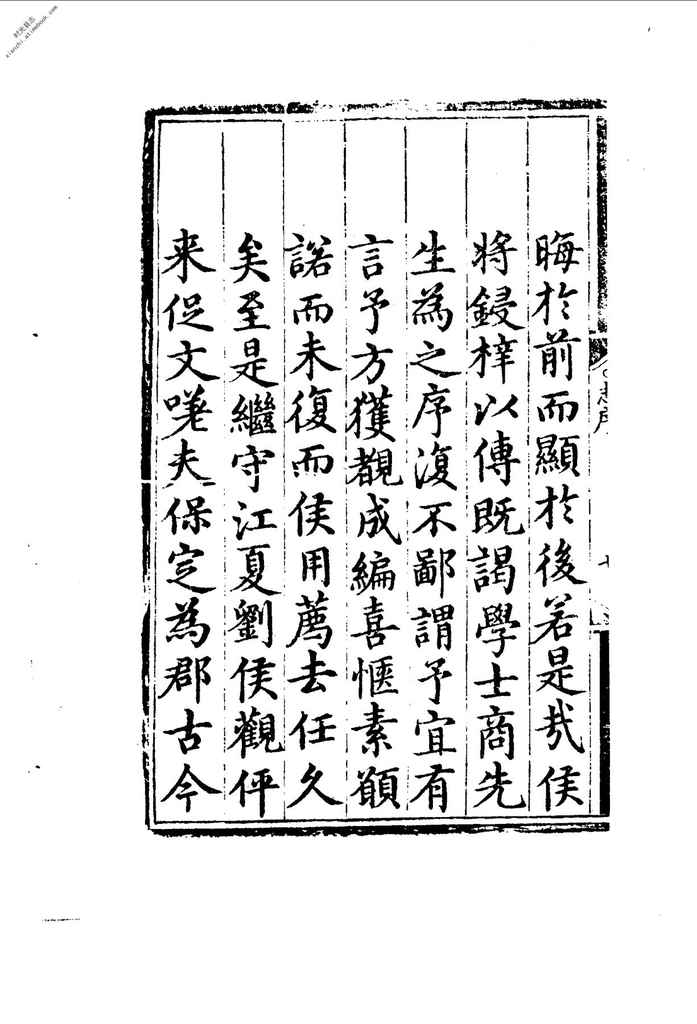 晦於前而顯於後若是哉侯
將鋟梓以傳既謁學士商先
生為之序復不鄙謂予宜有
言予方獲覩成編喜愜素願
諾而未復而侯用薦去任久
矣至是繼守江夏劉侯觀伻
来促文嘆夫保定為郡古今
志序
时光县志
xianzhi.atimebook.com